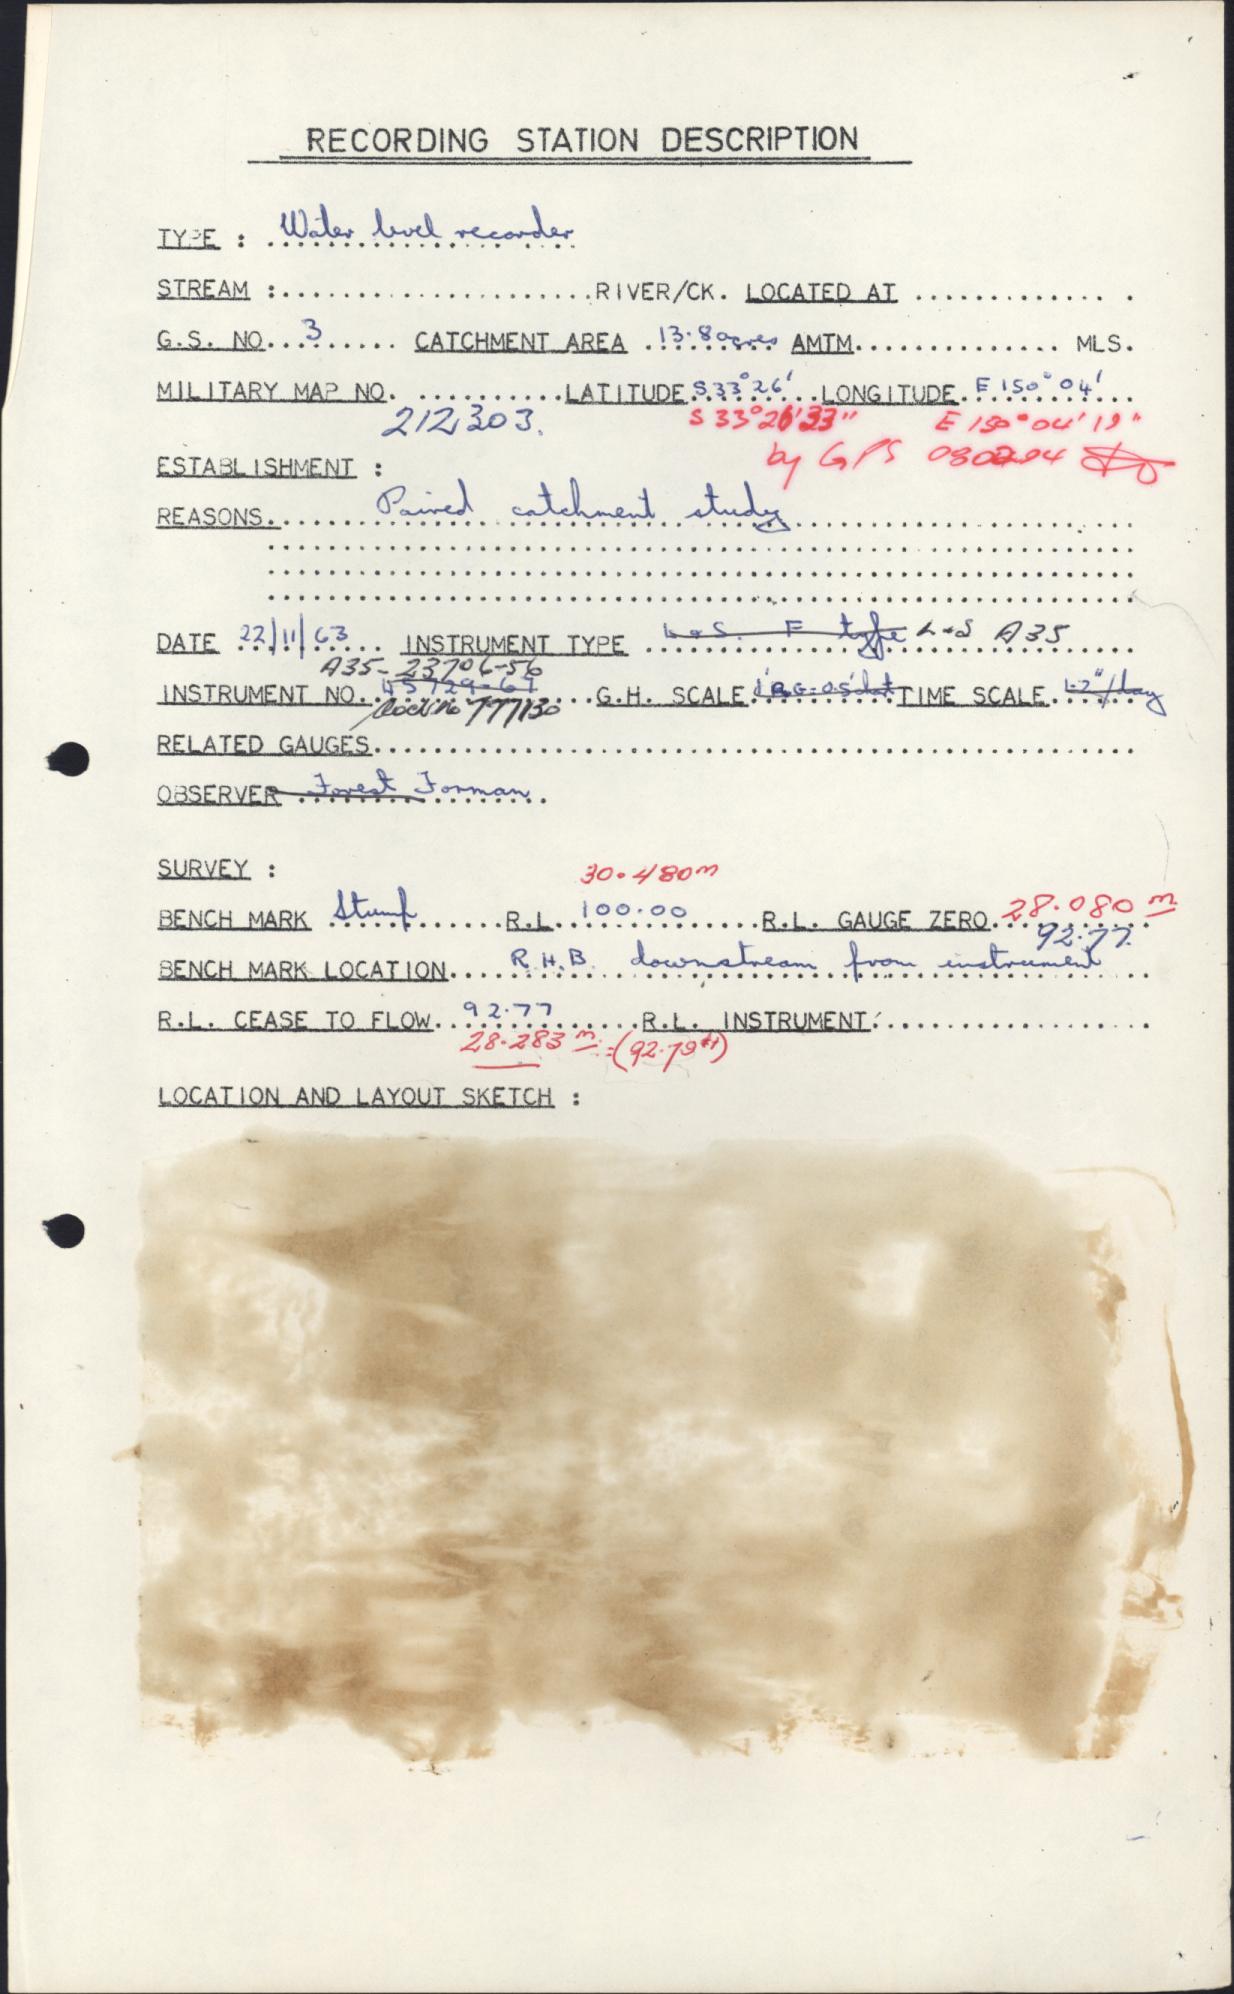 RECORDING STATION DESCRIPTION
TYPE : Water level recorder
STREAM :......................RIVER/CK. LOCATED AT ..............
G.S. NO...3...... CATCHMENT AREA .13.8 acres AMTM............... MLS.
MILITARY MAP NO. ..........LATITUDE S33°26' LONGITUDE E150°04'
212303. S 33°26'33" E 150°04'19"
by GPS 080204
ESTABLISHMENT :
REASONS. Paired catchment study
DATE 22/11/63 INSTRUMENT TYPE L&S. F type L&S A35
A35-23706-56
INSTRUMENT NO. 45729-67 G.H. SCALE TIME SCALE 1.2"/day
Clock No 777130
RELATED GAUGES
OBSERVER Forest Forman
SURVEY :
30.480m
BENCH MARK Stump R.L. 100.00 R.L. GAUGE ZERO 28.080 m
92.77
BENCH MARK LOCATION R.H.B. downstream from instrument
R.L. CEASE TO FLOW 92.77 R.L. INSTRUMENT:
28.283 m =(92.79ft)
LOCATION AND LAYOUT SKETCH :